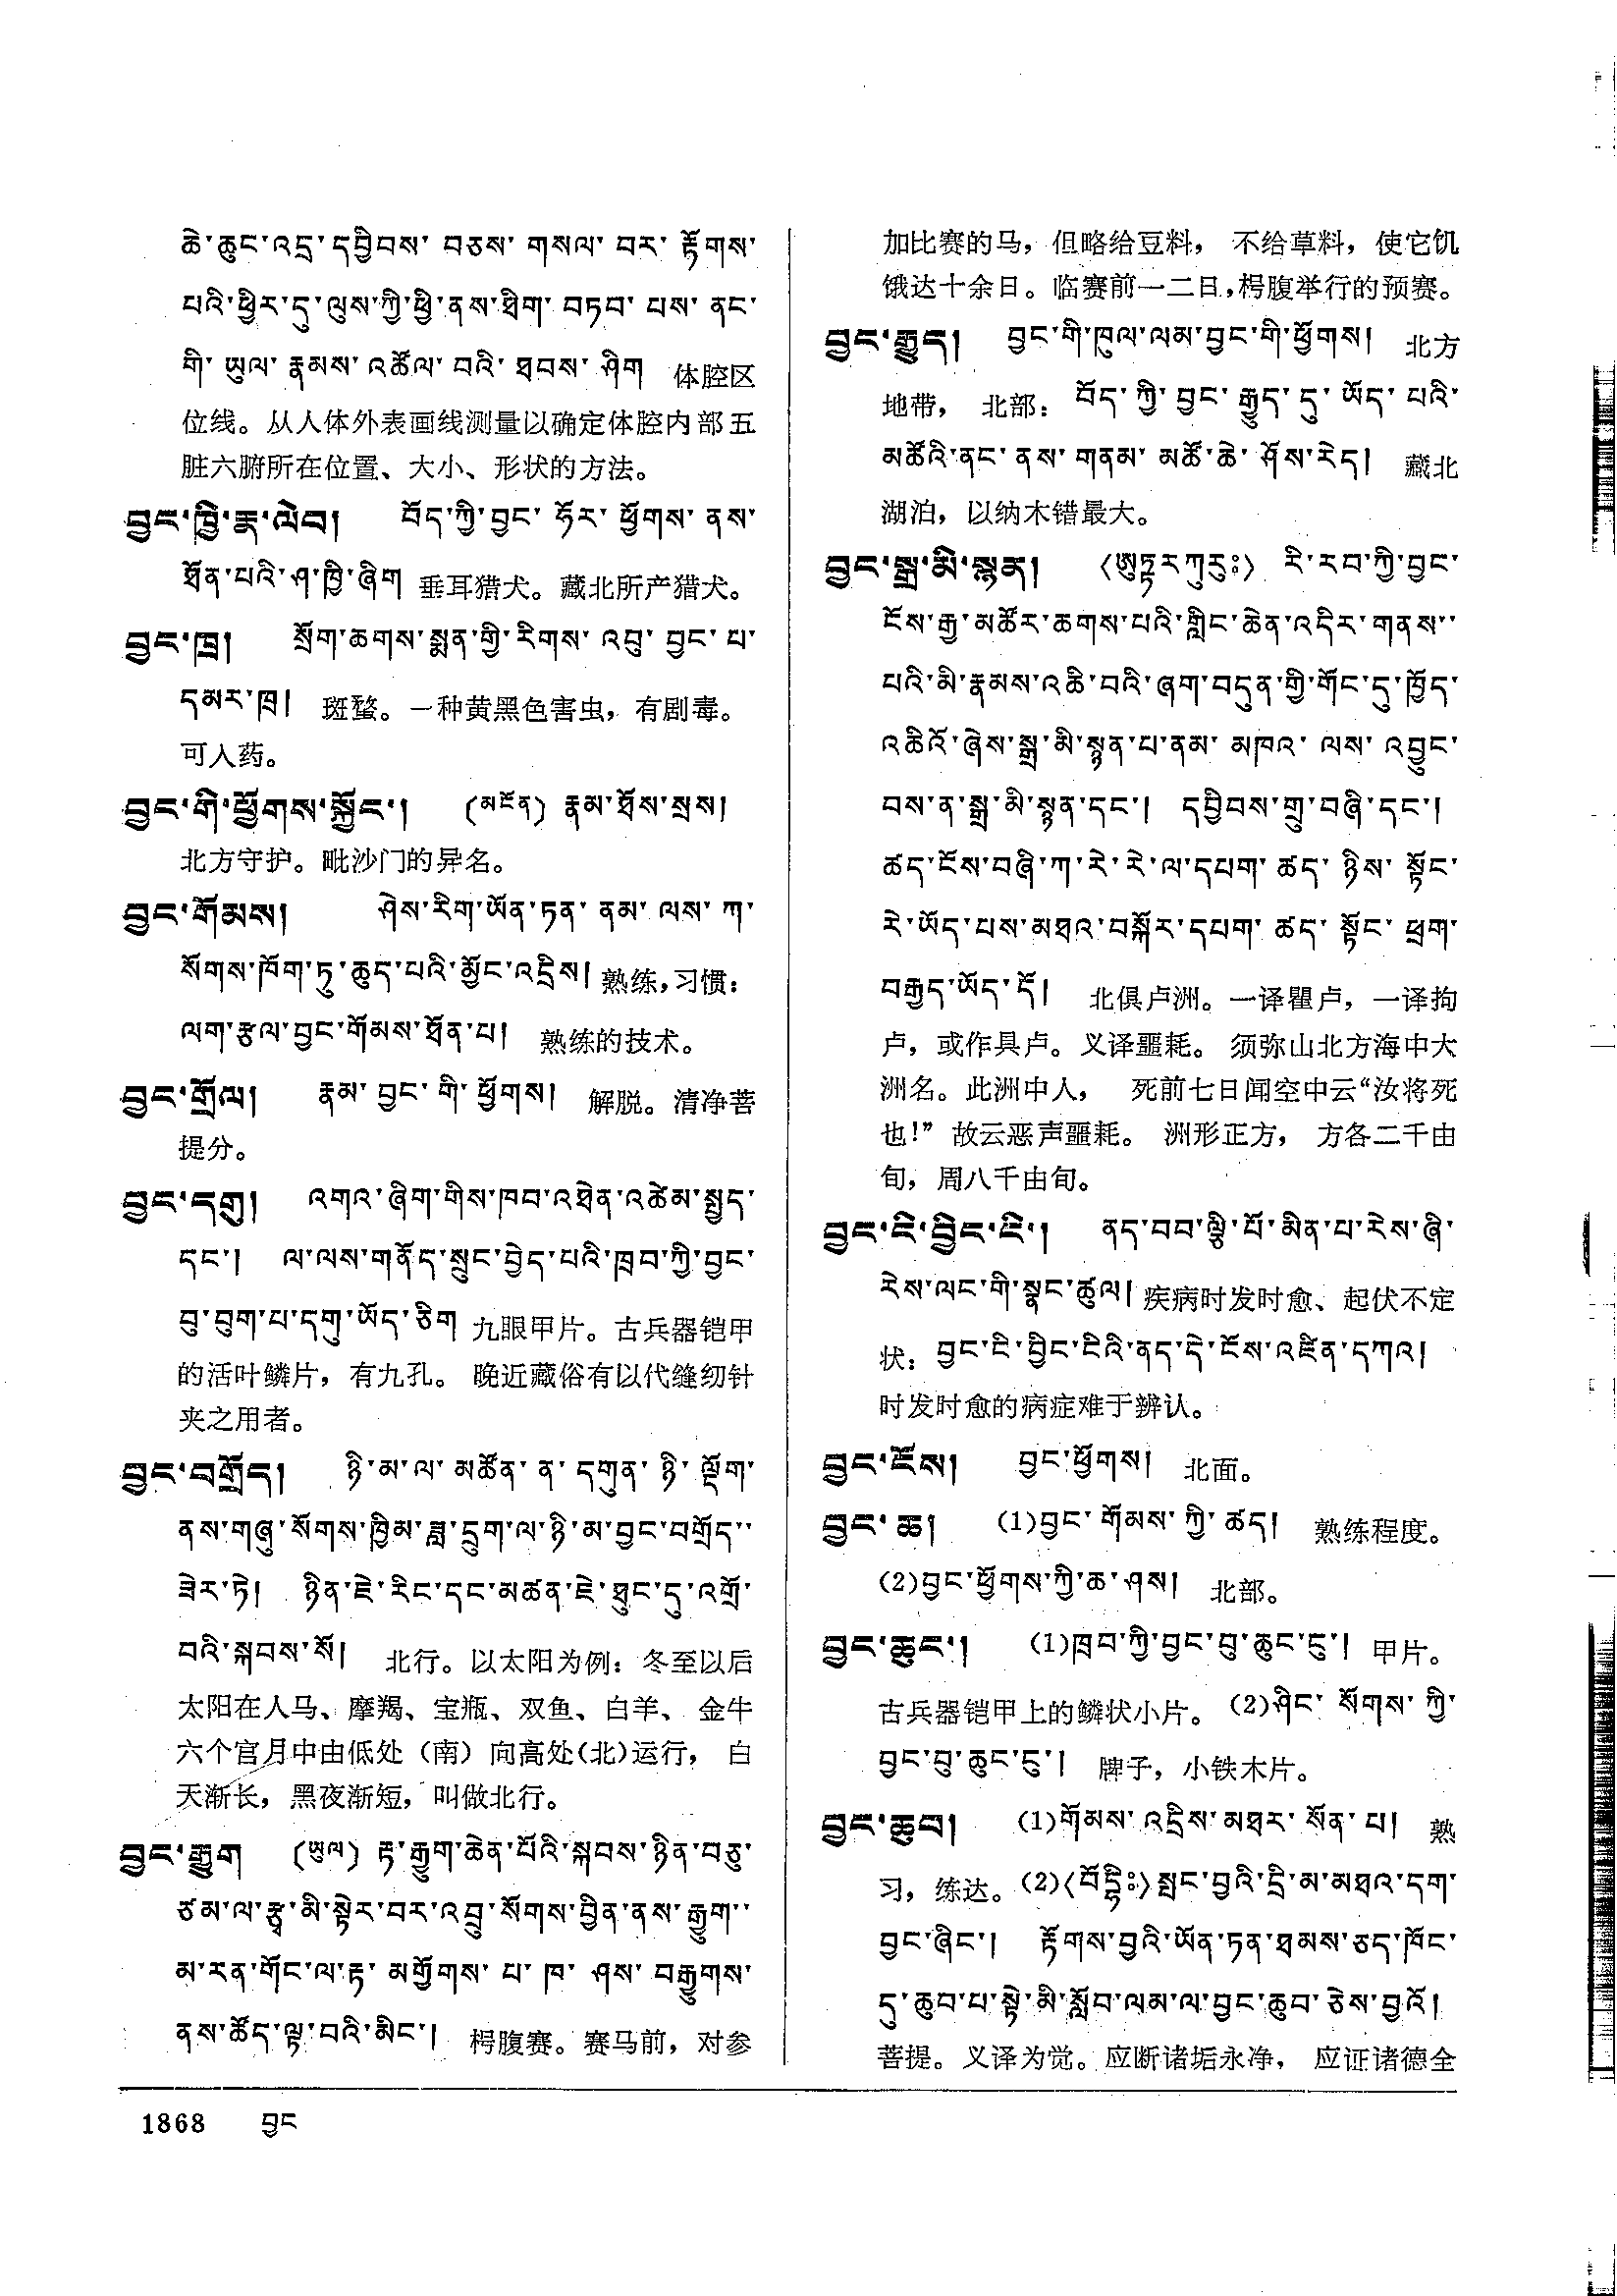 ཆེ་ཆུང་འདྲ་དབྱིབས་ བཅས་ གསལ་ བར་ རྟོགས་
པའི་ཕྱིར་དུ་ལུས་ཀྱི་ཕྱི་ནས་ཐིག་ བཏབ་ པས་ ནང་
གི་ ཡུལ་ རྣམས་ འཚོལ་ བའི་ ཐབས་ ཤིག 体腔区
位线。从人体外表画线测量以确定体腔内部五
脏六腑所在位置、大小、形状的方法。
བྱང་ཁྱི་རྣ་ལེབ། བོད་ཀྱི་བྱང་ ཧོར་ ཕྱོགས་ ནས་
ཐོན་པའི་ཤ་ཁྱི་ཞིག 垂耳猎犬。藏北所产猎犬。
བྱང་ཁྲ། སྲོག་ཆགས་སྨན་གྱི་རིགས་ འབུ་ བྱང་ པ་
དམར་ཁྲ། 斑蝥。一种黄黑色害虫，有剧毒。
可入药。
བྱང་གི་ཕྱོགས་སྐྱོང་། (མངོན) རྣམ་ཐོས་སྲས།
北方守护。毗沙门的异名。
བྱང་གོམས། ཤེས་རིག་ཡོན་ཏན་ ནམ་ ལས་ ཀ་
སོགས་ཁོག་ཏུ་ཆུད་པའི་མྱོང་འདྲིས། 熟练，习惯：
ལག་རྩལ་བྱང་གོམས་ཐོན་པ། 熟练的技术。
བྱང་གྲོལ། རྣམ་ བྱང་ གི་ ཕྱོགས། 解脱。清净菩
提分。
བྱང་དགུ། འགའ་ཞིག་གིས་ཁབ་འཐེན་འཚེམ་སྤྱད་
དང་། ལ་ལས་གནོད་སྲུང་བྱེད་པའི་ཁྲབ་ཀྱི་བྱང་
བུ་བུག་པ་དགུ་ཡོད་ཅིག 九眼甲片。古兵器铠甲
的活叶鳞片，有九孔。晚近藏俗有以代缝纫针
夹之用者。
བྱང་བགྲོད། ཉི་མ་ལ་ མཚོན་ ན་ དགུན་ ཉི་ ལྡོག་
ནས་གཞུ་སོགས་ཁྱིམ་ཟླ་དྲུག་ལ་ཉི་མ་བྱང་བགྲོད་་
ཟེར་ཏེ། ཉིན་ཇེ་རིང་དང་མཚན་ཇེ་ཐུང་དུ་འགྲོ་
བའི་སྐབས་སོ། 北行。以太阳为例：冬至以后
太阳在人马、摩羯、宝瓶、双鱼、白羊、金牛
六个宫月中由低处（南）向高处(北)运行，白
天渐长，黑夜渐短，叫做北行。
བྱང་རྒྱུག (ཡུལ) རྟ་རྒྱུག་ཆེན་པོའི་སྐབས་ཉིན་བཅུ་
ཙམ་ལ་རྩྭ་མི་སྟེར་བར་འབྲུ་སོགས་བྱིན་ནས་རྒྱུག་་
མ་རན་གོང་ལ་རྟ་ མགྱོགས་ པ་ ཁ་ ཤས་ བརྒྱུགས་
ནས་ཚོད་ལྟ་བའི་མིང་། 枵腹赛。赛马前，对参
加比赛的马，但略给豆料，不给草料，使它饥
饿达十余日。临赛前一二日，枵腹举行的预赛。
བྱང་རྒྱུད། བྱང་གི་ཁུལ་ལམ་བྱང་གི་ཕྱོགས། 北方
地带，北部：བོད་ ཀྱི་ བྱང་ རྒྱུད་ དུ་ ཡོད་ པའི་
མཚོའི་ནང་ ནས་ གནམ་ མཚོ་ཆེ་ ཤོས་རེད། 藏北
湖泊，以纳木错最大。
བྱང་སྒྲ་མི་སྙན། 〈ཨུཏྟརཀུརུཿ〉 རི་རབ་ཀྱི་བྱང་
ངོས་རྒྱ་མཚོར་ཆགས་པའི་གླིང་ཆེན་འདིར་གནས་་
པའི་མི་རྣམས་འཆི་བའི་ཞག་བདུན་གྱི་གོང་དུ་ཁྱོད་
འཆིའོ་ཞེས་སྒྲ་མི་སྙན་པ་ནམ་ མཁའ་ ལས་ འབྱུང་
བས་ན་སྒྲ་མི་སྙན་དང་། དབྱིབས་གྲུ་བཞི་དང་།
ཚད་ངོས་བཞི་ཀ་རེ་རེ་ལ་དཔག་ ཚད་ ཉིས་ སྟོང་
རེ་ཡོད་པས་མཐའ་བསྐོར་དཔག་ ཚད་ སྟོང་ ཕྲག་
བརྒྱད་ཡོད་དོ། 北俱卢洲。一译瞿卢，一译拘
卢，或作具卢。义译噩耗。须弥山北方海中大
洲名。此洲中人，死前七日闻空中云“汝将死
也！”故云恶声噩耗。洲形正方，方各二千由
旬，周八千由旬。
བྱང་ངེ་བྱིང་ངེ་། ནད་བབ་ལྕི་པོ་མིན་པ་རེས་ཞི་
རེས་ལང་གི་སྣང་ཚུལ། 疾病时发时愈、起伏不定
状：བྱང་ངེ་བྱིང་ངེའི་ནད་དེ་ངོས་འཛིན་དཀའ།
时发时愈的病症难于辨认。
བྱང་ངོས། བྱང་ཕྱོགས། 北面。
བྱང་ཆ། (1)བྱང་ གོམས་ ཀྱི་ ཚད། 熟练程度。
(2)བྱང་ཕྱོགས་ཀྱི་ཆ་ཤས། 北部。
བྱང་ཆུང་། (1)ཁྲབ་ཀྱི་བྱང་བུ་ཆུང་ངུ་། 甲片。
古兵器铠甲上的鳞状小片。(2)ཤིང་ སོགས་ ཀྱི་
བྱང་བུ་ཆུང་ངུ་། 牌子，小铁木片。
བྱང་ཆུབ། (1)གོམས་འདྲིས་མཐར་ སོན་ པ། 熟
习，练达。(2)〈བོདྷིཿ〉སྤང་བྱའི་དྲི་མ་མཐའ་དག་
བྱང་ཞིང་། རྟོགས་བྱའི་ཡོན་ཏན་ཐམས་ཅད་ཁོང་
དུ་ཆུབ་པ་སྟེ་མི་སློབ་ལམ་ལ་བྱང་ཆུབ་ཅེས་བྱའོ།
菩提。义译为觉。应断诸垢永净，应证诸德全
1868 བྱང